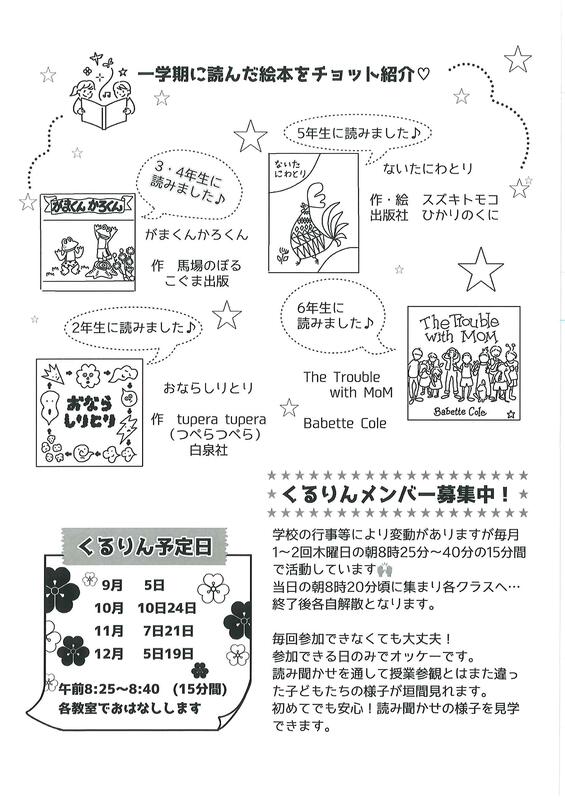 一学期に読んだ絵本をチョット紹介♡
3・4年生に
読みました♪
がまくんかろくん
がまくんかろくん
作　馬場のぼる
こぐま出版
5年生に読みました♪
ないた
にわとり
ないたにわとり
作・絵　スズキトモコ
出版社　ひかりのくに
2年生に読みました♪
おなら
しりとり
おならしりとり
作　tupera tupera
（つぺらつぺら）
白泉社
6年生に
読みました♪
The Trouble
with MoM
Babette Cole
The Trouble
with MOM
Babette Cole
くるりんメンバー募集中！
学校の行事等により変動がありますが毎月
1〜2回木曜日の朝8時25分〜40分の15分間
で活動しています🙌
当日の朝8時20分頃に集まり各クラスへ…
終了後各自解散となります。
毎回参加できなくても大丈夫！
参加できる日のみでオッケーです。
読み聞かせを通して授業参観とはまた違っ
た子どもたちの様子が垣間見れます。
初めてでも安心！読み聞かせの様子を見学
できます。
くるりん予定日
9月　5日
10月　10日24日
11月　7日21日
12月　5日19日
午前8:25〜8:40　(15分間)
各教室でおはなしします